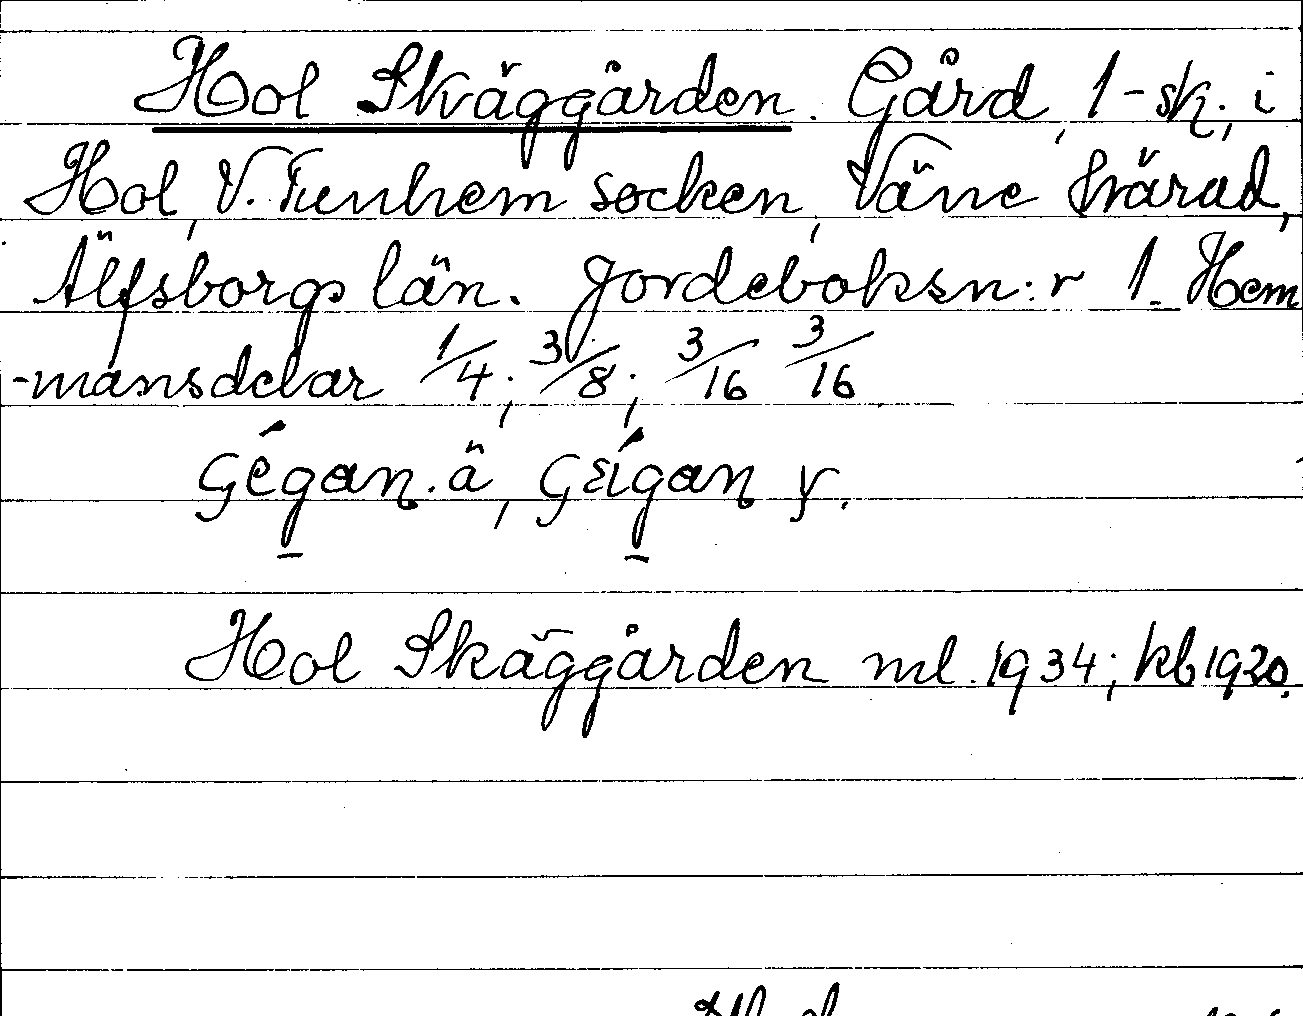 Hol Skäggården. Gård, 1-sk., i
Hol, V. Tunhem socken, Väne härad,
Älfsborgs län. Jordeboksn:r 1. Hem
-mansdelar 1/4; 3/8; 3/16 3/16
Gégan. ä, Gείgan y.
Hol Skäggården ml. 1934; kb 1920.